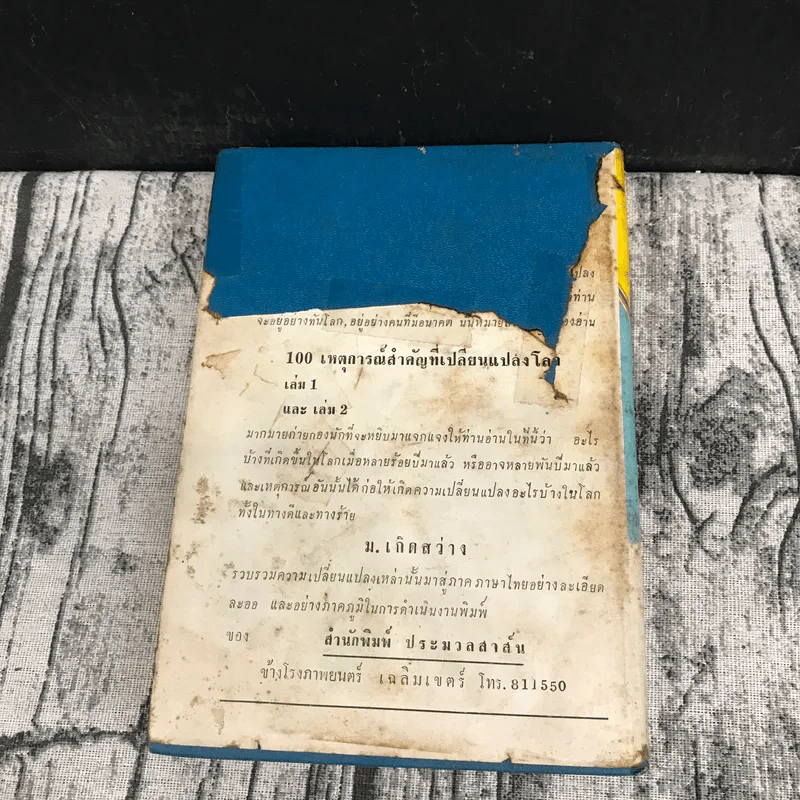 ปลง
ท่าน
จะอยู่อย่างทันโลก, อยู่อย่างคนที่มีอนาคต นั่นหมาย องอ่าน
100 เหตุการณ์สำคัญที่เปลี่ยนแปลงโลก
เล่ม 1
และ เล่ม 2
มากมายถ่ายกองนักที่จะหยิบมาแจกแจงให้ท่านอ่านในที่นี้ว่า อะไร
บ้างที่เกิดขึ้นในโลกเมื่อหลายร้อยปีมาแล้ว หรืออาจหลายพันปีมาแล้ว
และเหตุการณ์อันนั้นได้ก่อให้เกิดความเปลี่ยนแปลงอะไรบ้างในโลก
ทั้งในทางดีและทางร้าย
ม. เกิดสว่าง
รวบรวมความเปลี่ยนแปลงเหล่านั้นมาสู่ภาคภาษาไทยอย่างละเอียด
ละออ และอย่างภาคภูมิในการดำเนินงานพิมพ์
ของ สำนักพิมพ์ ประมวลสาส์น
ข้างโรงภาพยนตร์ เฉลิมเขตร์ โทร. 811550